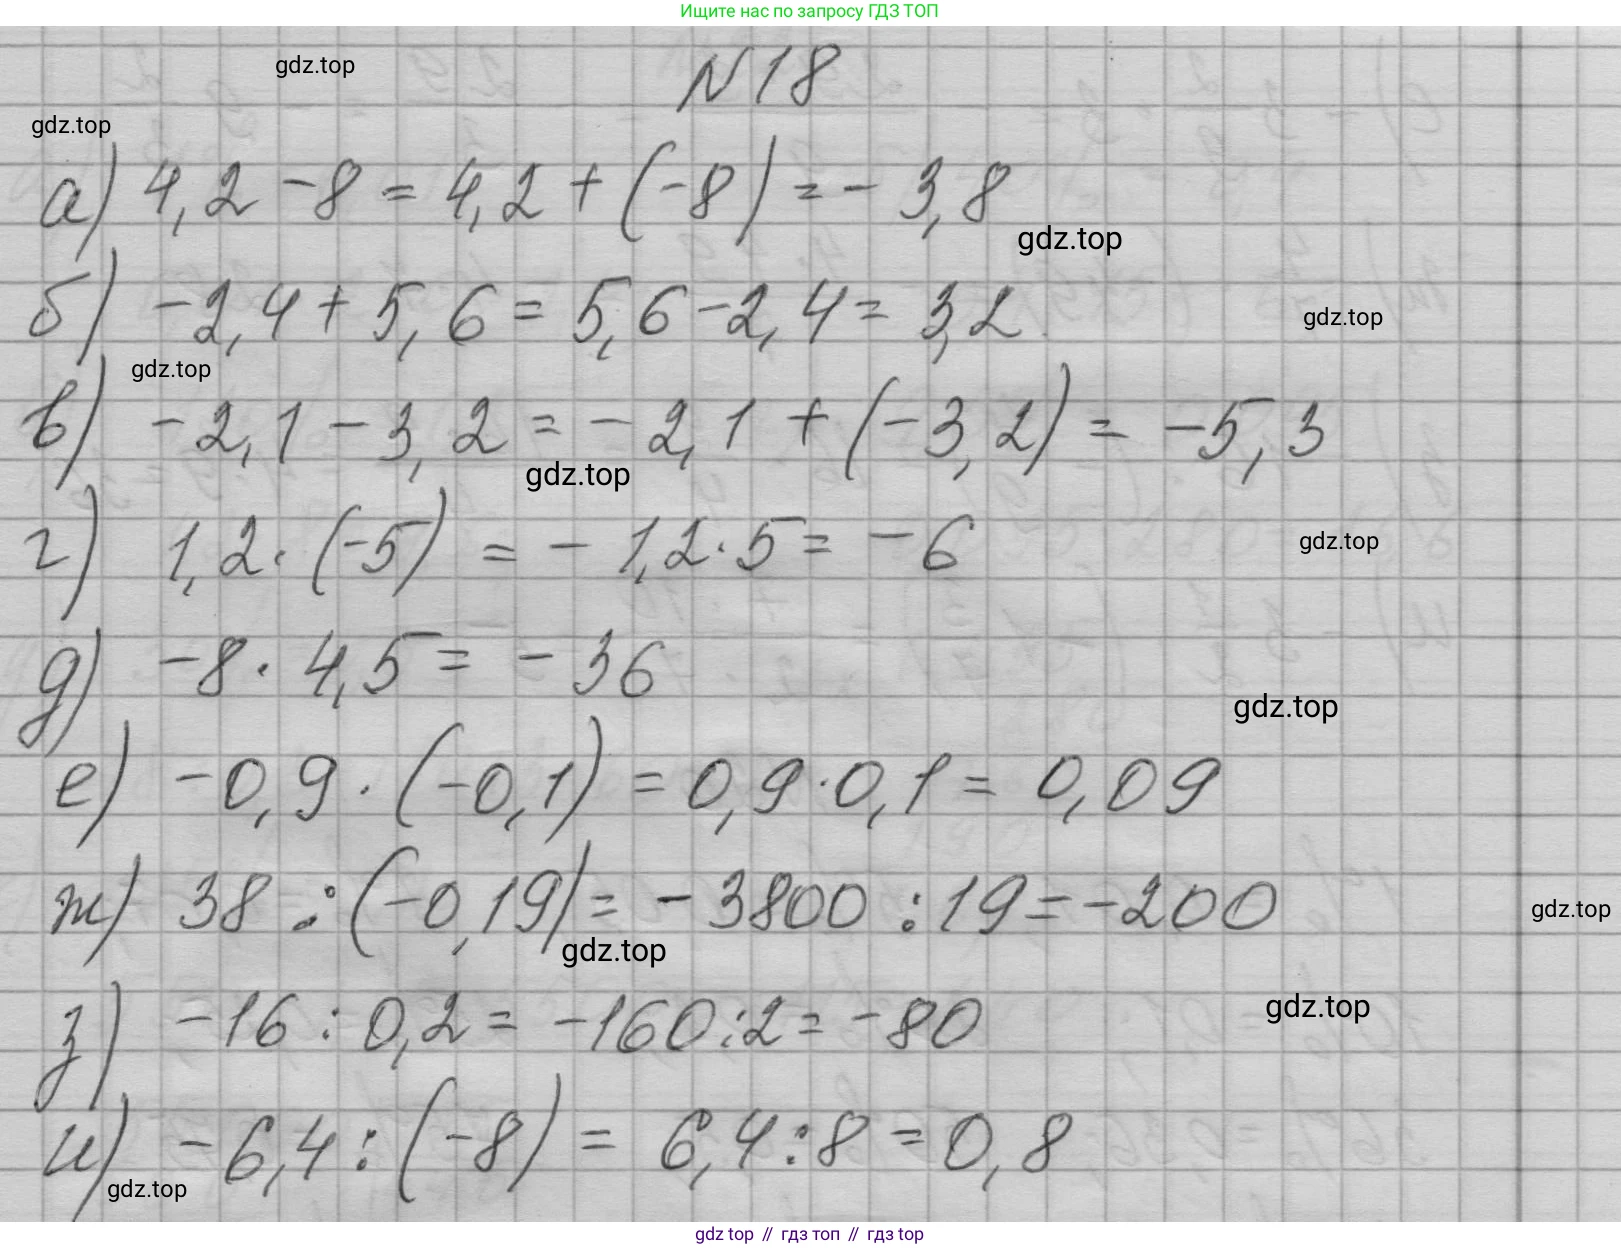 Ищите нас по запросу ГДЗ ТОП
gdz.top
N 18
gdz.top
а) 4,2 - 8 = 4,2 + (-8) = - 3,8
gdz.top
б) -2,4 + 5,6 = 5,6 - 2,4 = 3,2
gdz.top
gdz.top
в) -2,1 - 3,2 = -2,1 + (-3,2) = -5,3
gdz.top
г) 1,2 · (-5) = - 1,2 · 5 = -6
gdz.top
д) -8 · 4,5 = -36
gdz.top
е) -0,9 · (-0,1) = 0,9 · 0,1 = 0,09
ж) 38 : (-0,19) = -3800 : 19 = -200
gdz.top
gdz.top
з) -16 : 0,2 = -160 : 2 = -80
gdz.top
и) -6,4 : (-8) = 6,4 : 8 = 0,8
gdz.top
gdz top // гдз топ // гдз top